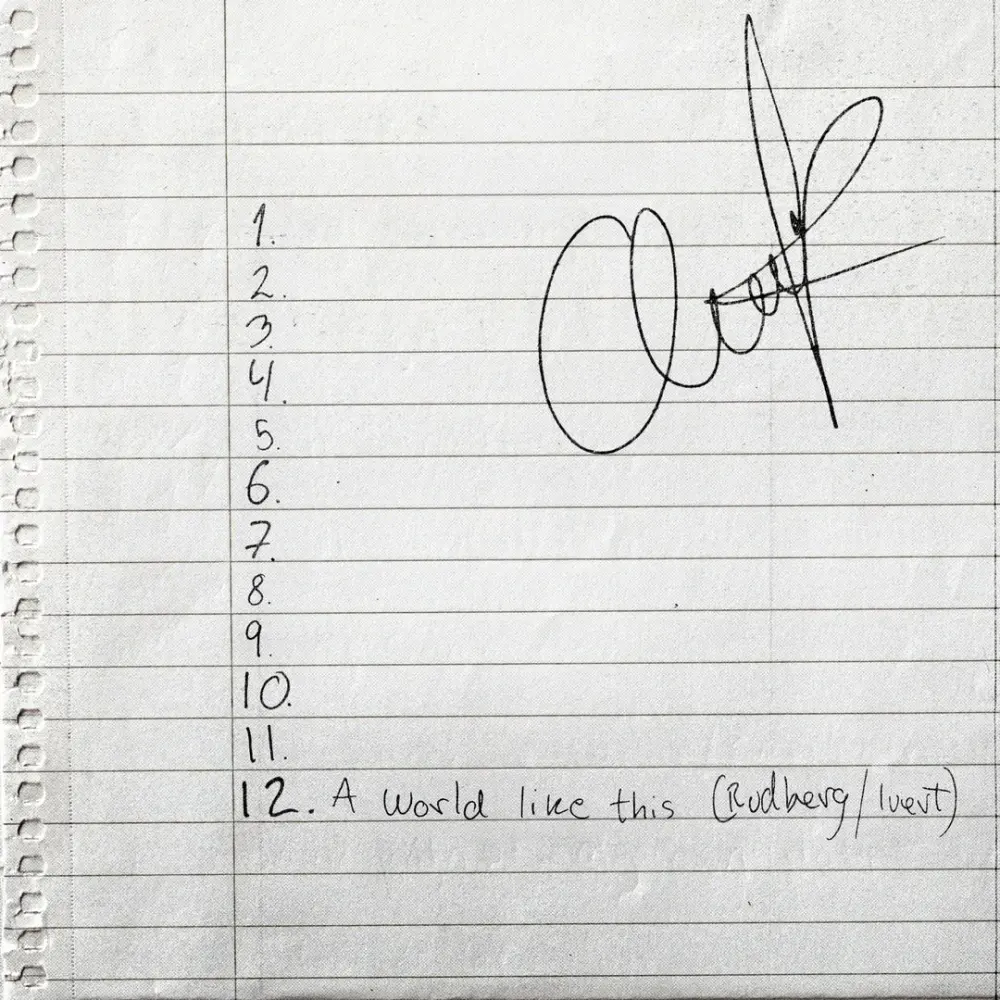 1.
2.
3.
4.
5.
6.
7.
8.
9.
10.
11.
12. A world like this (Rudberg/Ivert)